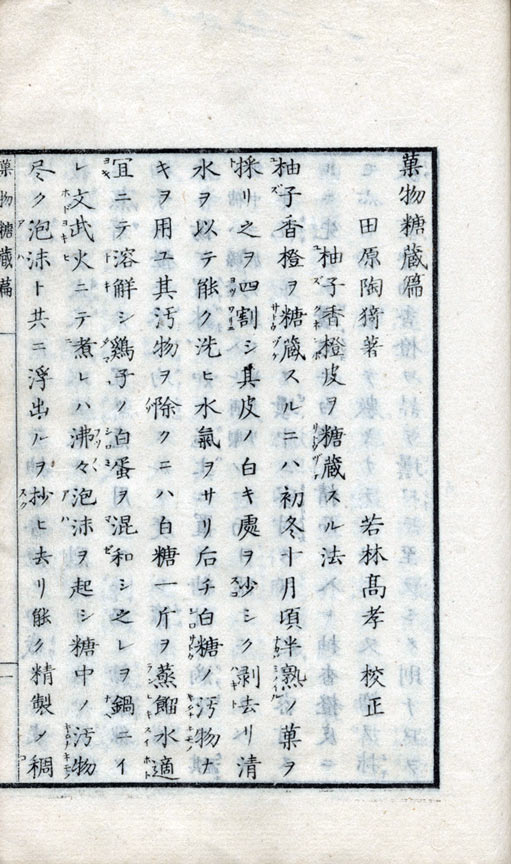 菓物糖蔵篇
田原陶猗著　若林髙孝　校正
柚子香橙皮ヲ糖蔵スル法
柚子香橙ヲ糖蔵スルニハ初冬十月頃半熟ノ菓ヲ
採リ之ヲ四割シ其皮ノ白キ處ヲ少シク剥去リ清
水ヲ以テ能ク洗ヒ水氣ヲサリ后チ白糖ノ汚物ナ
キヲ用ユ其汚物ヲ除クニハ白糖一斤ヲ蒸餾水適
宜ニテ溶解シ鷄子ノ白蛋ヲ混和シ之レヲ鍋ニイ
レ文武火ニテ煮レハ沸々泡沫ヲ起シ糖中ノ汚物
尽ク泡沫ト共ニ浮出ルヲ抄ヒ去リ能ク精製ノ稠
菓物糖蔵篇
一